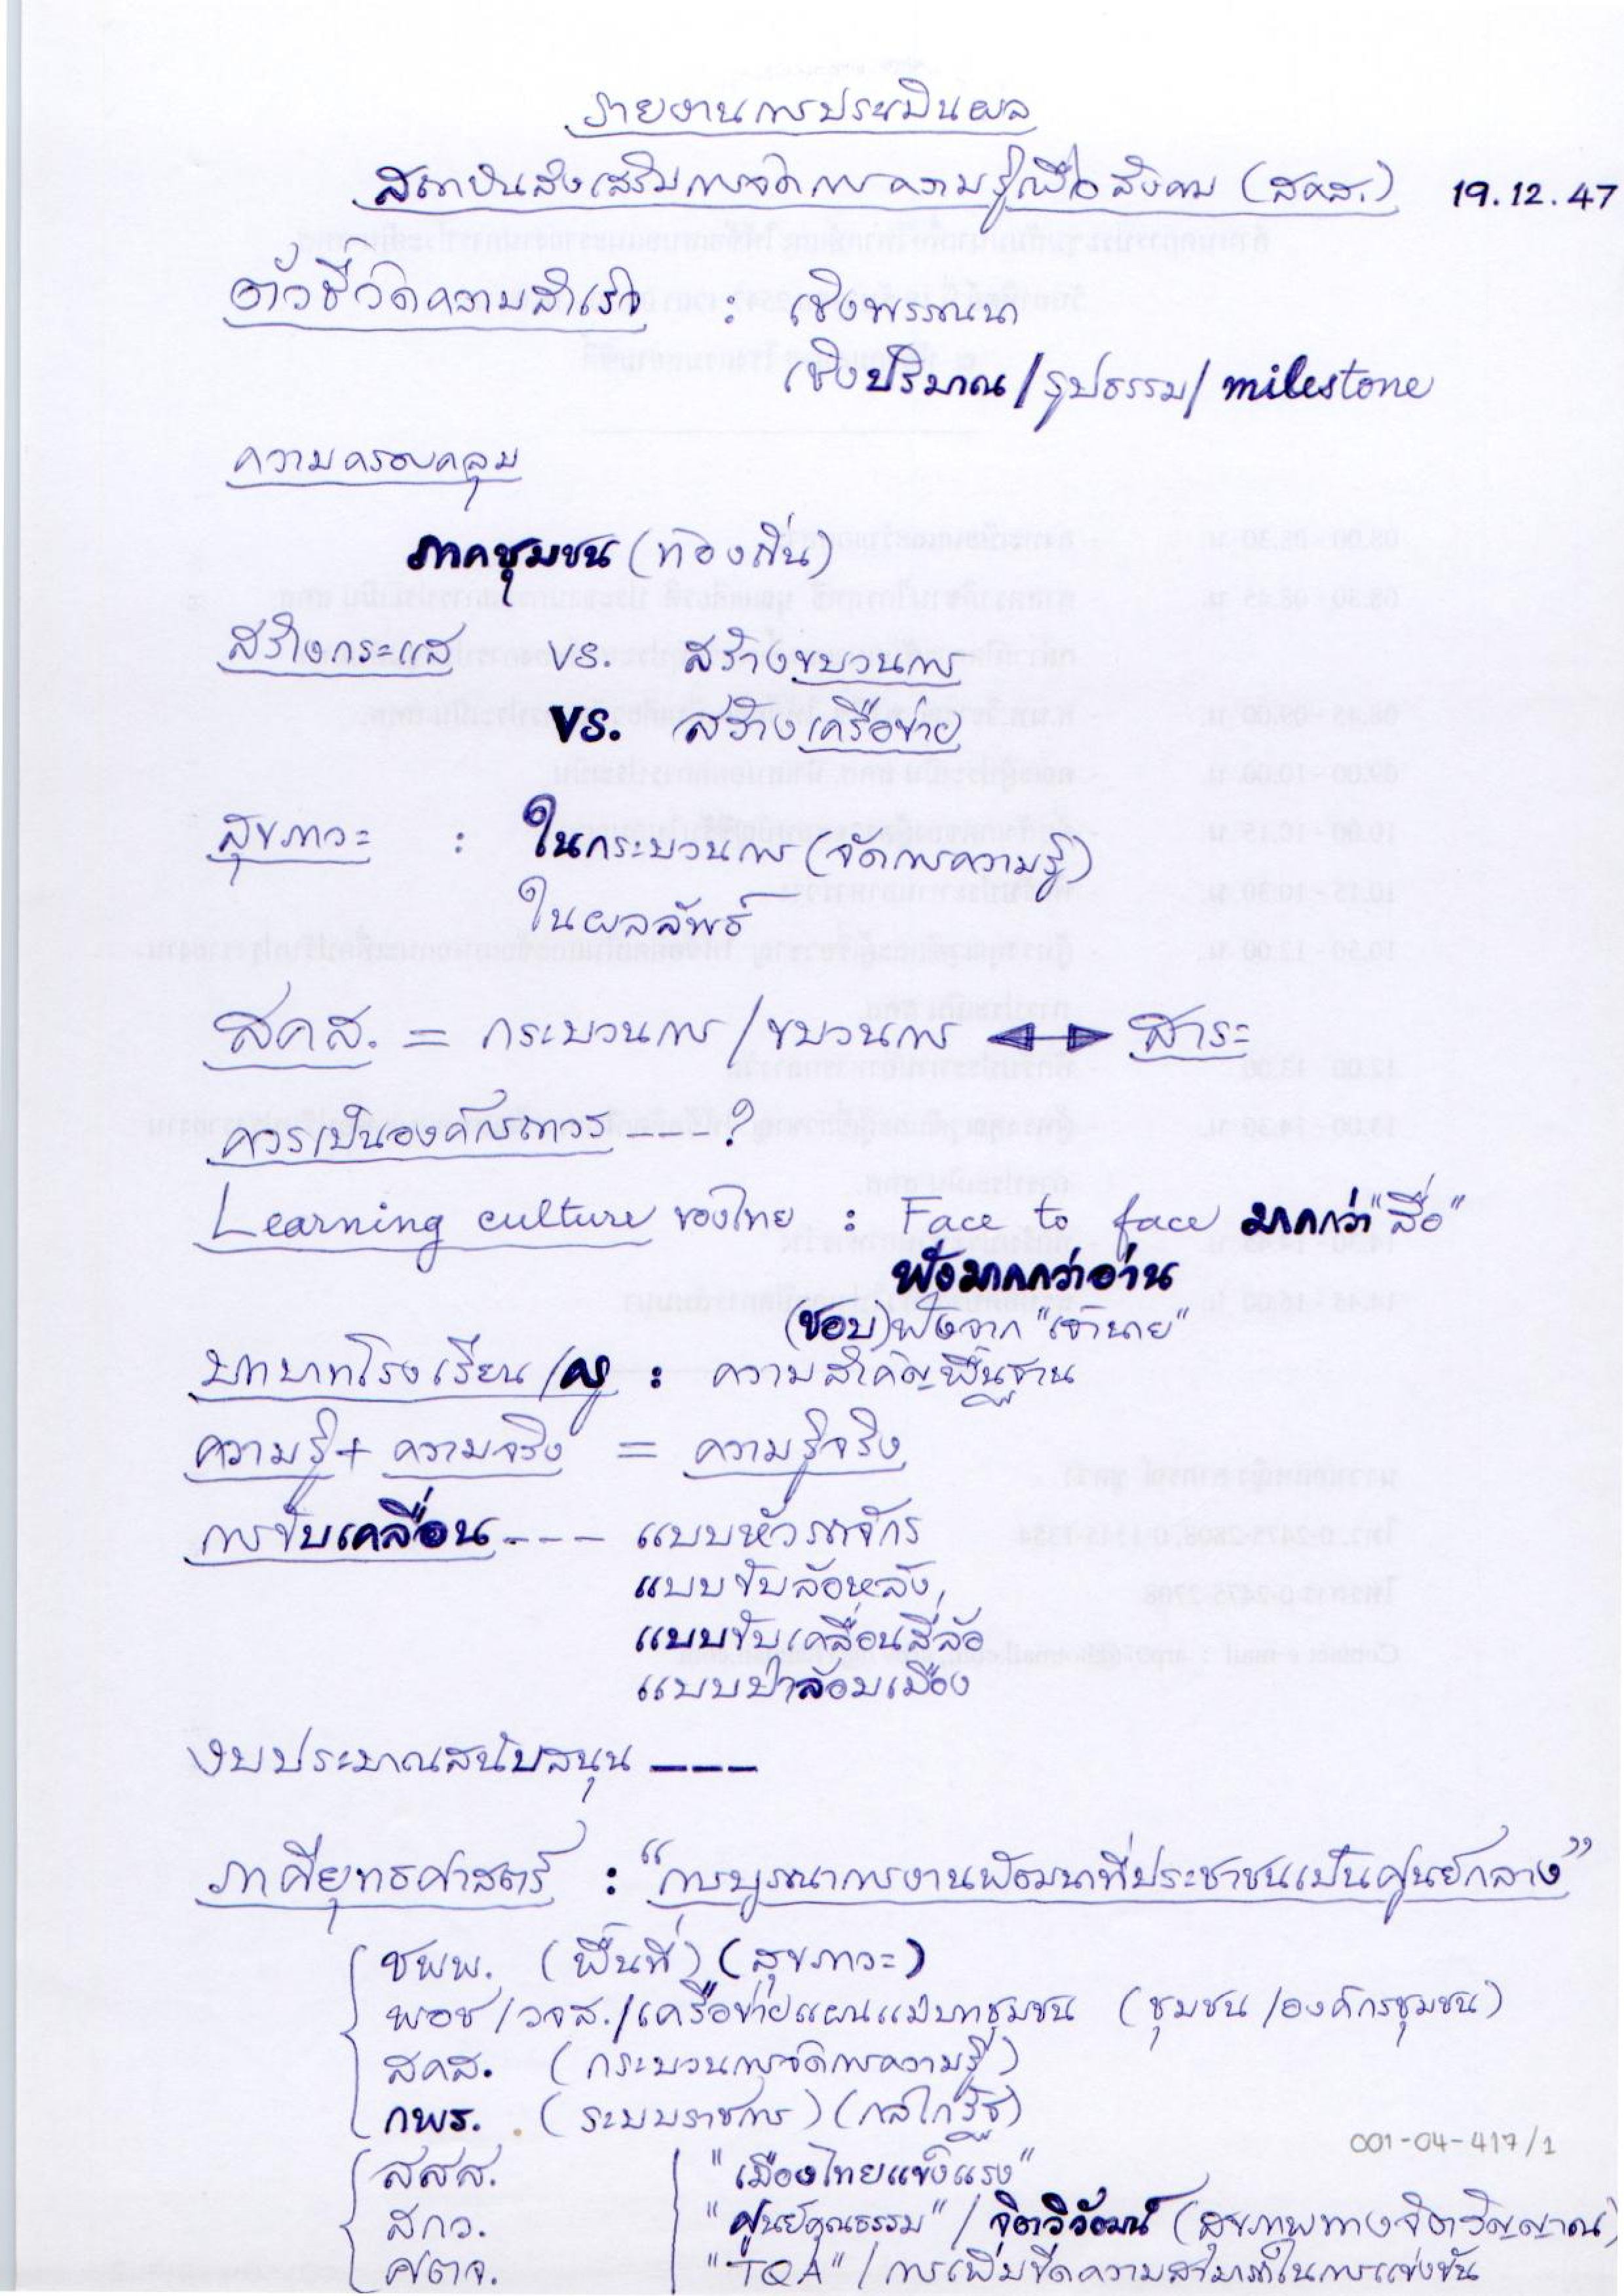 รายงานการประเมินผล
สถาบันส่งเสริมการจัดการความรู้เพื่อสังคม (สคส.) 19.12.47
ตัวชี้วัดความสำเร็จ : เชิงพรรณนา
เชิงปริมาณ/รูปธรรม/milestone
ความครอบคลุม
ภาคชุมชน (ท้องถิ่น)
สร้างกระแส vs. สร้างขบวนการ
vs. สร้างเครือข่าย
สุขภาวะ : ในกระบวนการ (จัดการความรู้)
ในผลลัพธ์
สคส. = กระบวนการ/ขบวนการ ◄─► สาระ
ควรเป็นองค์กรถาวร ---?
Learning culture ของไทย : Face to face มากกว่า "สื่อ"
ฟังมากกว่าอ่าน
(ชอบ) ฟังจาก "เจ้านาย"
บทบาทโรงเรียน/ครู : ความสำคัญพื้นฐาน
ความรู้ + ความจริง = ความรู้จริง
การขับเคลื่อน --- แบบหัวรถจักร
แบบขับล้อหลัง
แบบขับเคลื่อนสี่ล้อ
แบบป่าล้อมเมือง
งบประมาณสนับสนุน ---
ภาคียุทธศาสตร์ : "การบูรณาการงานพัฒนาที่ประชาชนเป็นศูนย์กลาง"
ชพพ. (พื้นที่) (สุขภาวะ)
พอช/วจส./เครือข่ายแผนแม่บทชุมชน (ชุมชน/องค์กรชุมชน)
สคส. (กระบวนการจัดการความรู้)
กพร. (ระบบราชการ) (กลไกรัฐ)
001-04-417/1
สสส. "เมืองไทยแข็งแรง"
สกว. "ศูนย์คุณธรรม" / จิตวิวัฒน์ (สุขภาพทางจิตวิญญาณ)
ศตจ. "TQA" / การเพิ่มขีดความสามารถในการแข่งขัน